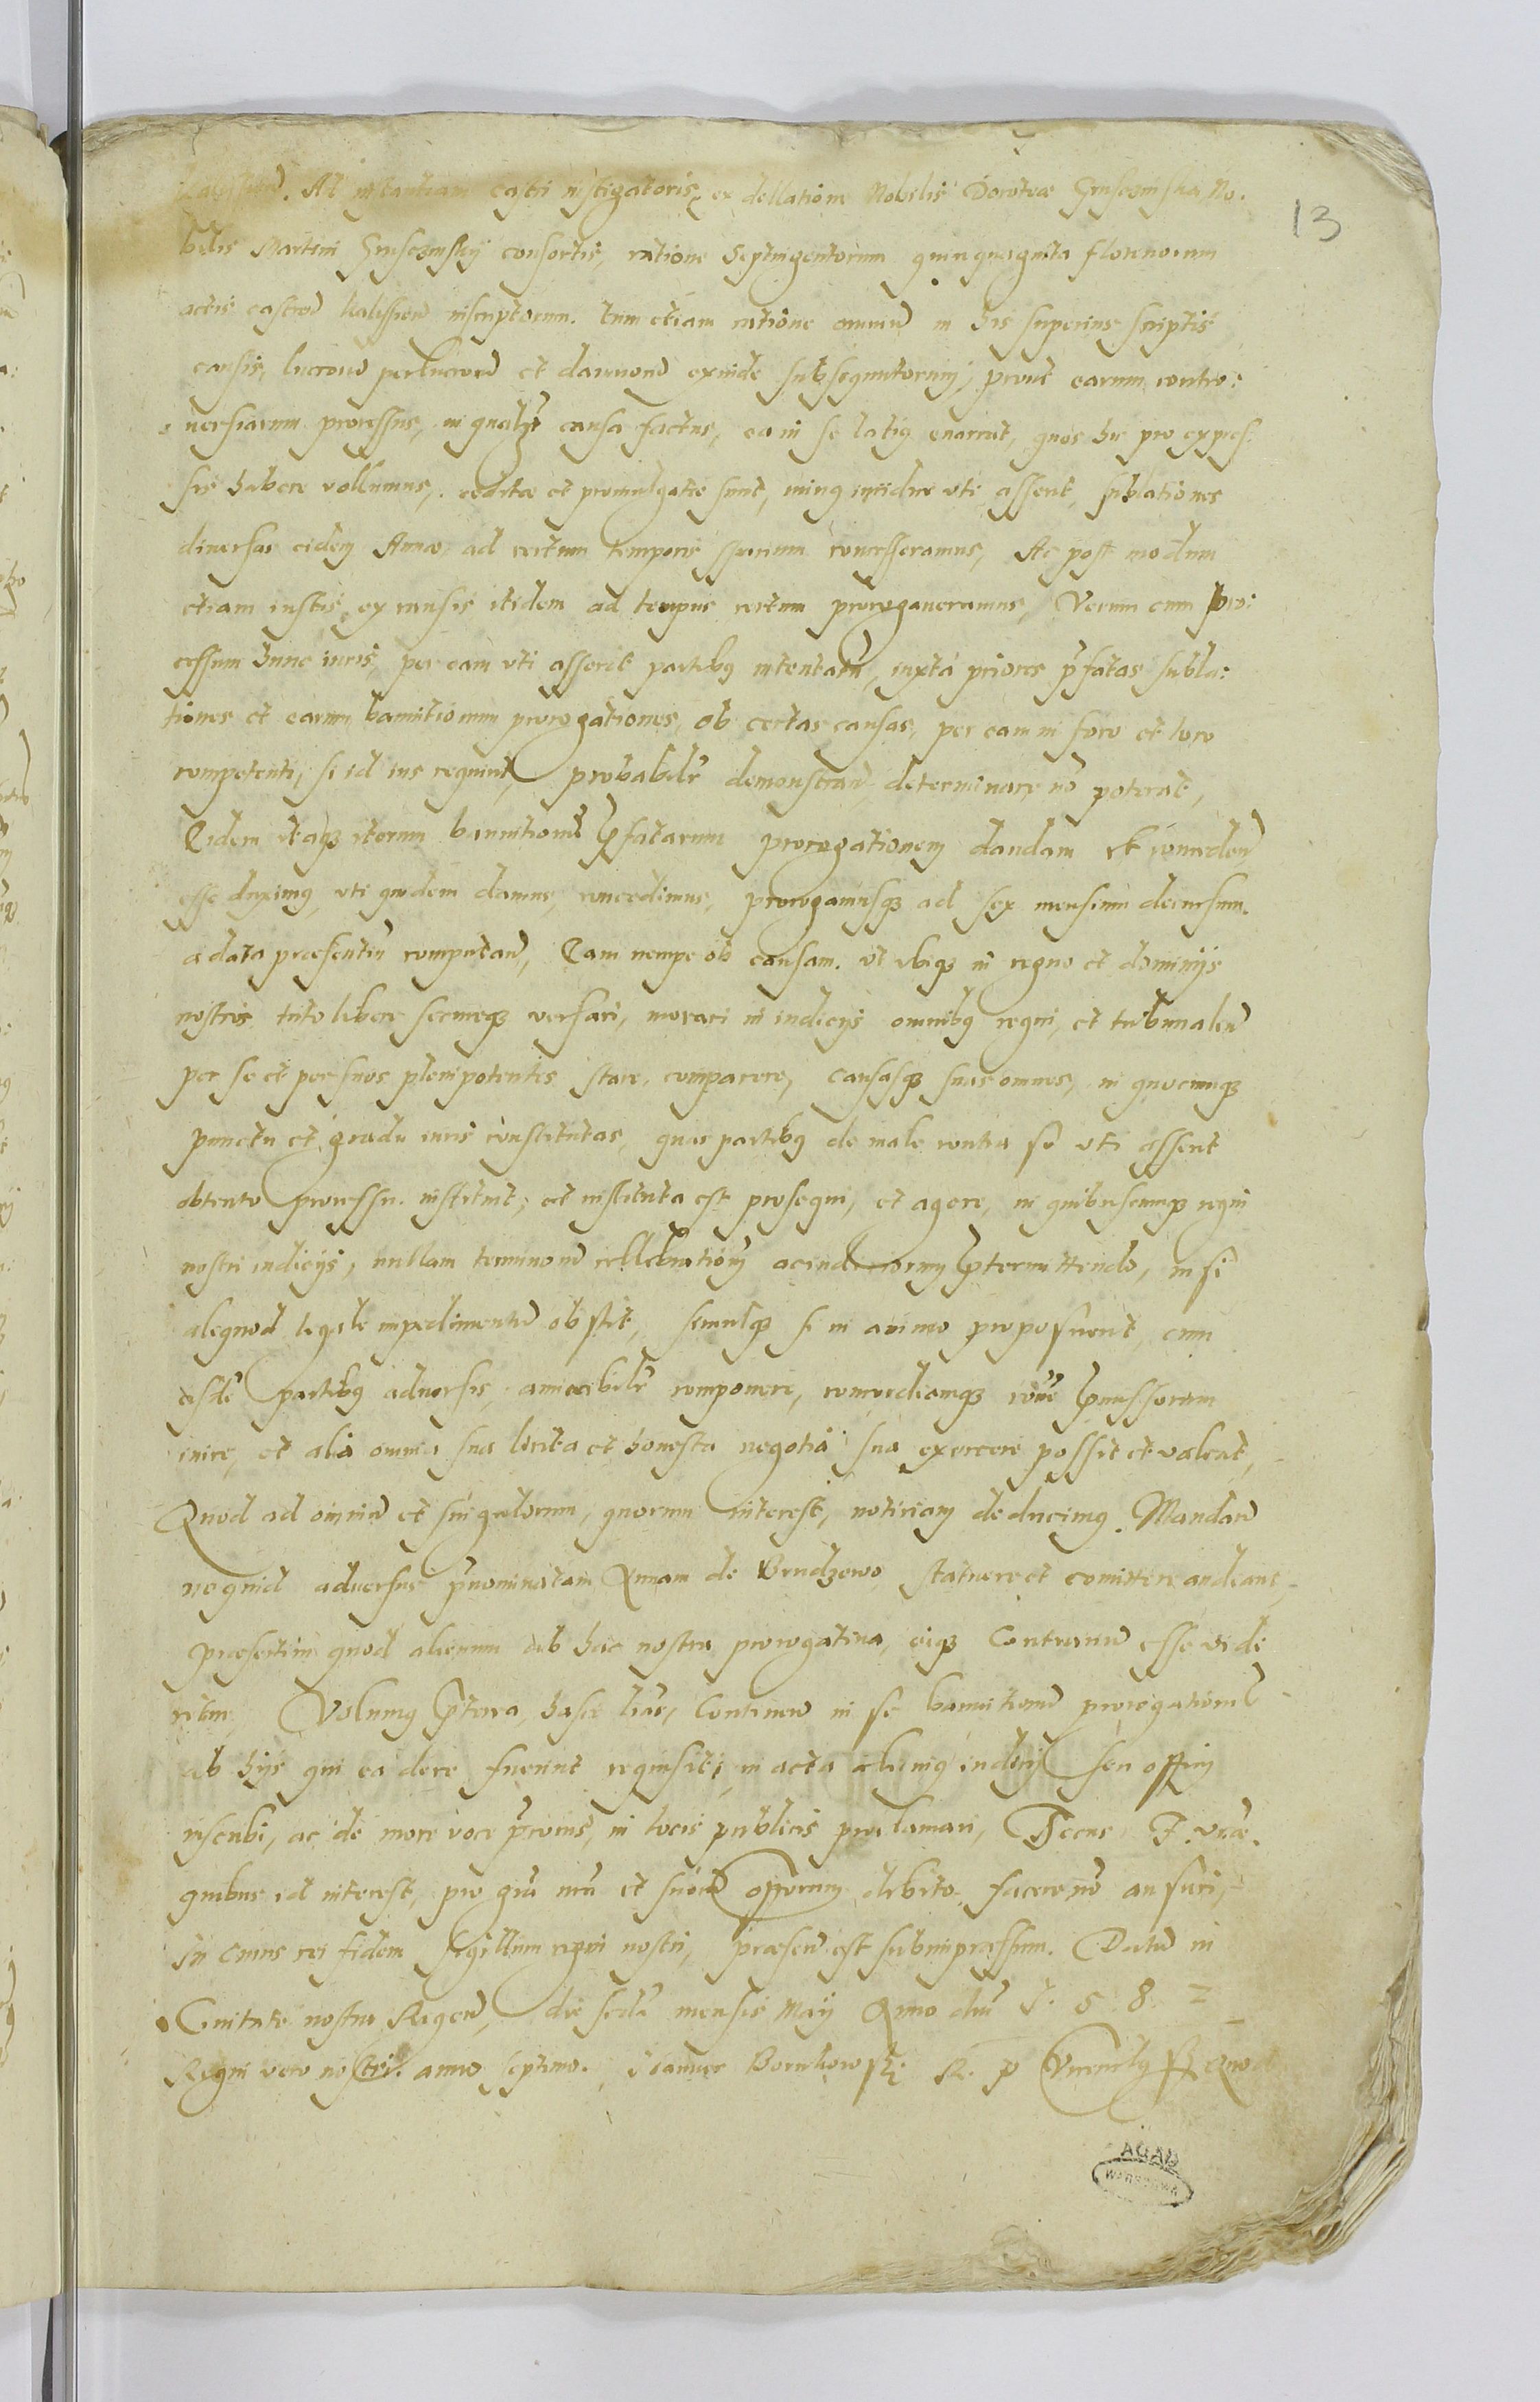 13
Ad instantiam castri instigatoris ex dellatione Nobilis Dorotheae No:
bilis Martini consortis, ratione Septuingentorum quinquaginta florenorum
actis castren Kalissien inscriptorum. tum etiam ratione omniu in his superius scriptis
causis, lucroru perlucroru et damnoru exinde subsequutorum, prout earum contro:
uersiarum processus, in qualibet causa factus, ea in se latius enarrat, quos hic pro expres:
sis habere vollumus, aeditae et promulgatae sunt, minus iuridice vti asserit, sublationes
diuersas eidem Annae, ad certum temporis spacium concesseramus, Ac post modum
etiam iustis ex causis itidem ad tempus certum prorogaueramus, Verum cum pro:
cessum hunc iuris, per eam vti asserit partibus intentatu, iuxta priores pfatas subla:
tiones et earum bannitionum prorogationes, ob certas causas, per eam in foro et loco
competenti, si id ius requiret, probabilr demonstran, determinare no poterat,
Eidem itaq iterum bannitionu pfatarum prorogationem dandam et conceden
esse duximus, vti quidem damus, concedimus, prorogamusq ad sex mensium decursum.
a data praesentiu computan, Eam nempe ob causam. vt vbiq in regno et dominijs
nostris tuto libere secureq versari, morari in iudicijs omnibus regni, et tribunalen
per se et per suos plenipotentes stare, comparere, causasq suas omnes, in quocunq
punctu et gradu iuris constitutas, quas partibus de male contra se vti asserit
obtento processu. instituit, et instituta est prosequi, et agere, in quibuscunq regni
nostri iudicijs, nullam terminoru cellebrationem ptermittendo, nisi
aliquod legale impedimentu obstet, simulq si in animo proposuerit, cum
eisde partibus aduersis amicabilr componere, concordiamq
inire, et alia omnia sua licita et honesta negotia sua exercere possit et valeat,
Quod ad omniu et singulorum, quorum interest, noticiam deducimus. Mandan
ne quid aduersus pnominatam Annam de Brudzewo statuere et comittere audeant,
praesertim quod alienum ab hac nostra prorogatiua, eiq Contrariu esse vide
ritur, Volumus pterea, hasce lras, Continen in se bannitionu prorogationem
ab hijs qui ea de re fuerint requisiti, in acta iudicij seu officij
inscribi, ac de more voce pconis, in locis publicis proclamari, Secus F. vrae.
quibus id interest, pro gra nra et suoru officiorum debito. facere no ausuri,
In cuius rei fidem sigillum regni nostri, praesen est subimpressum. Datu in
Ciuitate nostra Regen, die mensis Maij Anno dni 1. 5. 8. 2
Regni vero nostri. anno septimo. R. P
AGAD
WARSZAWA